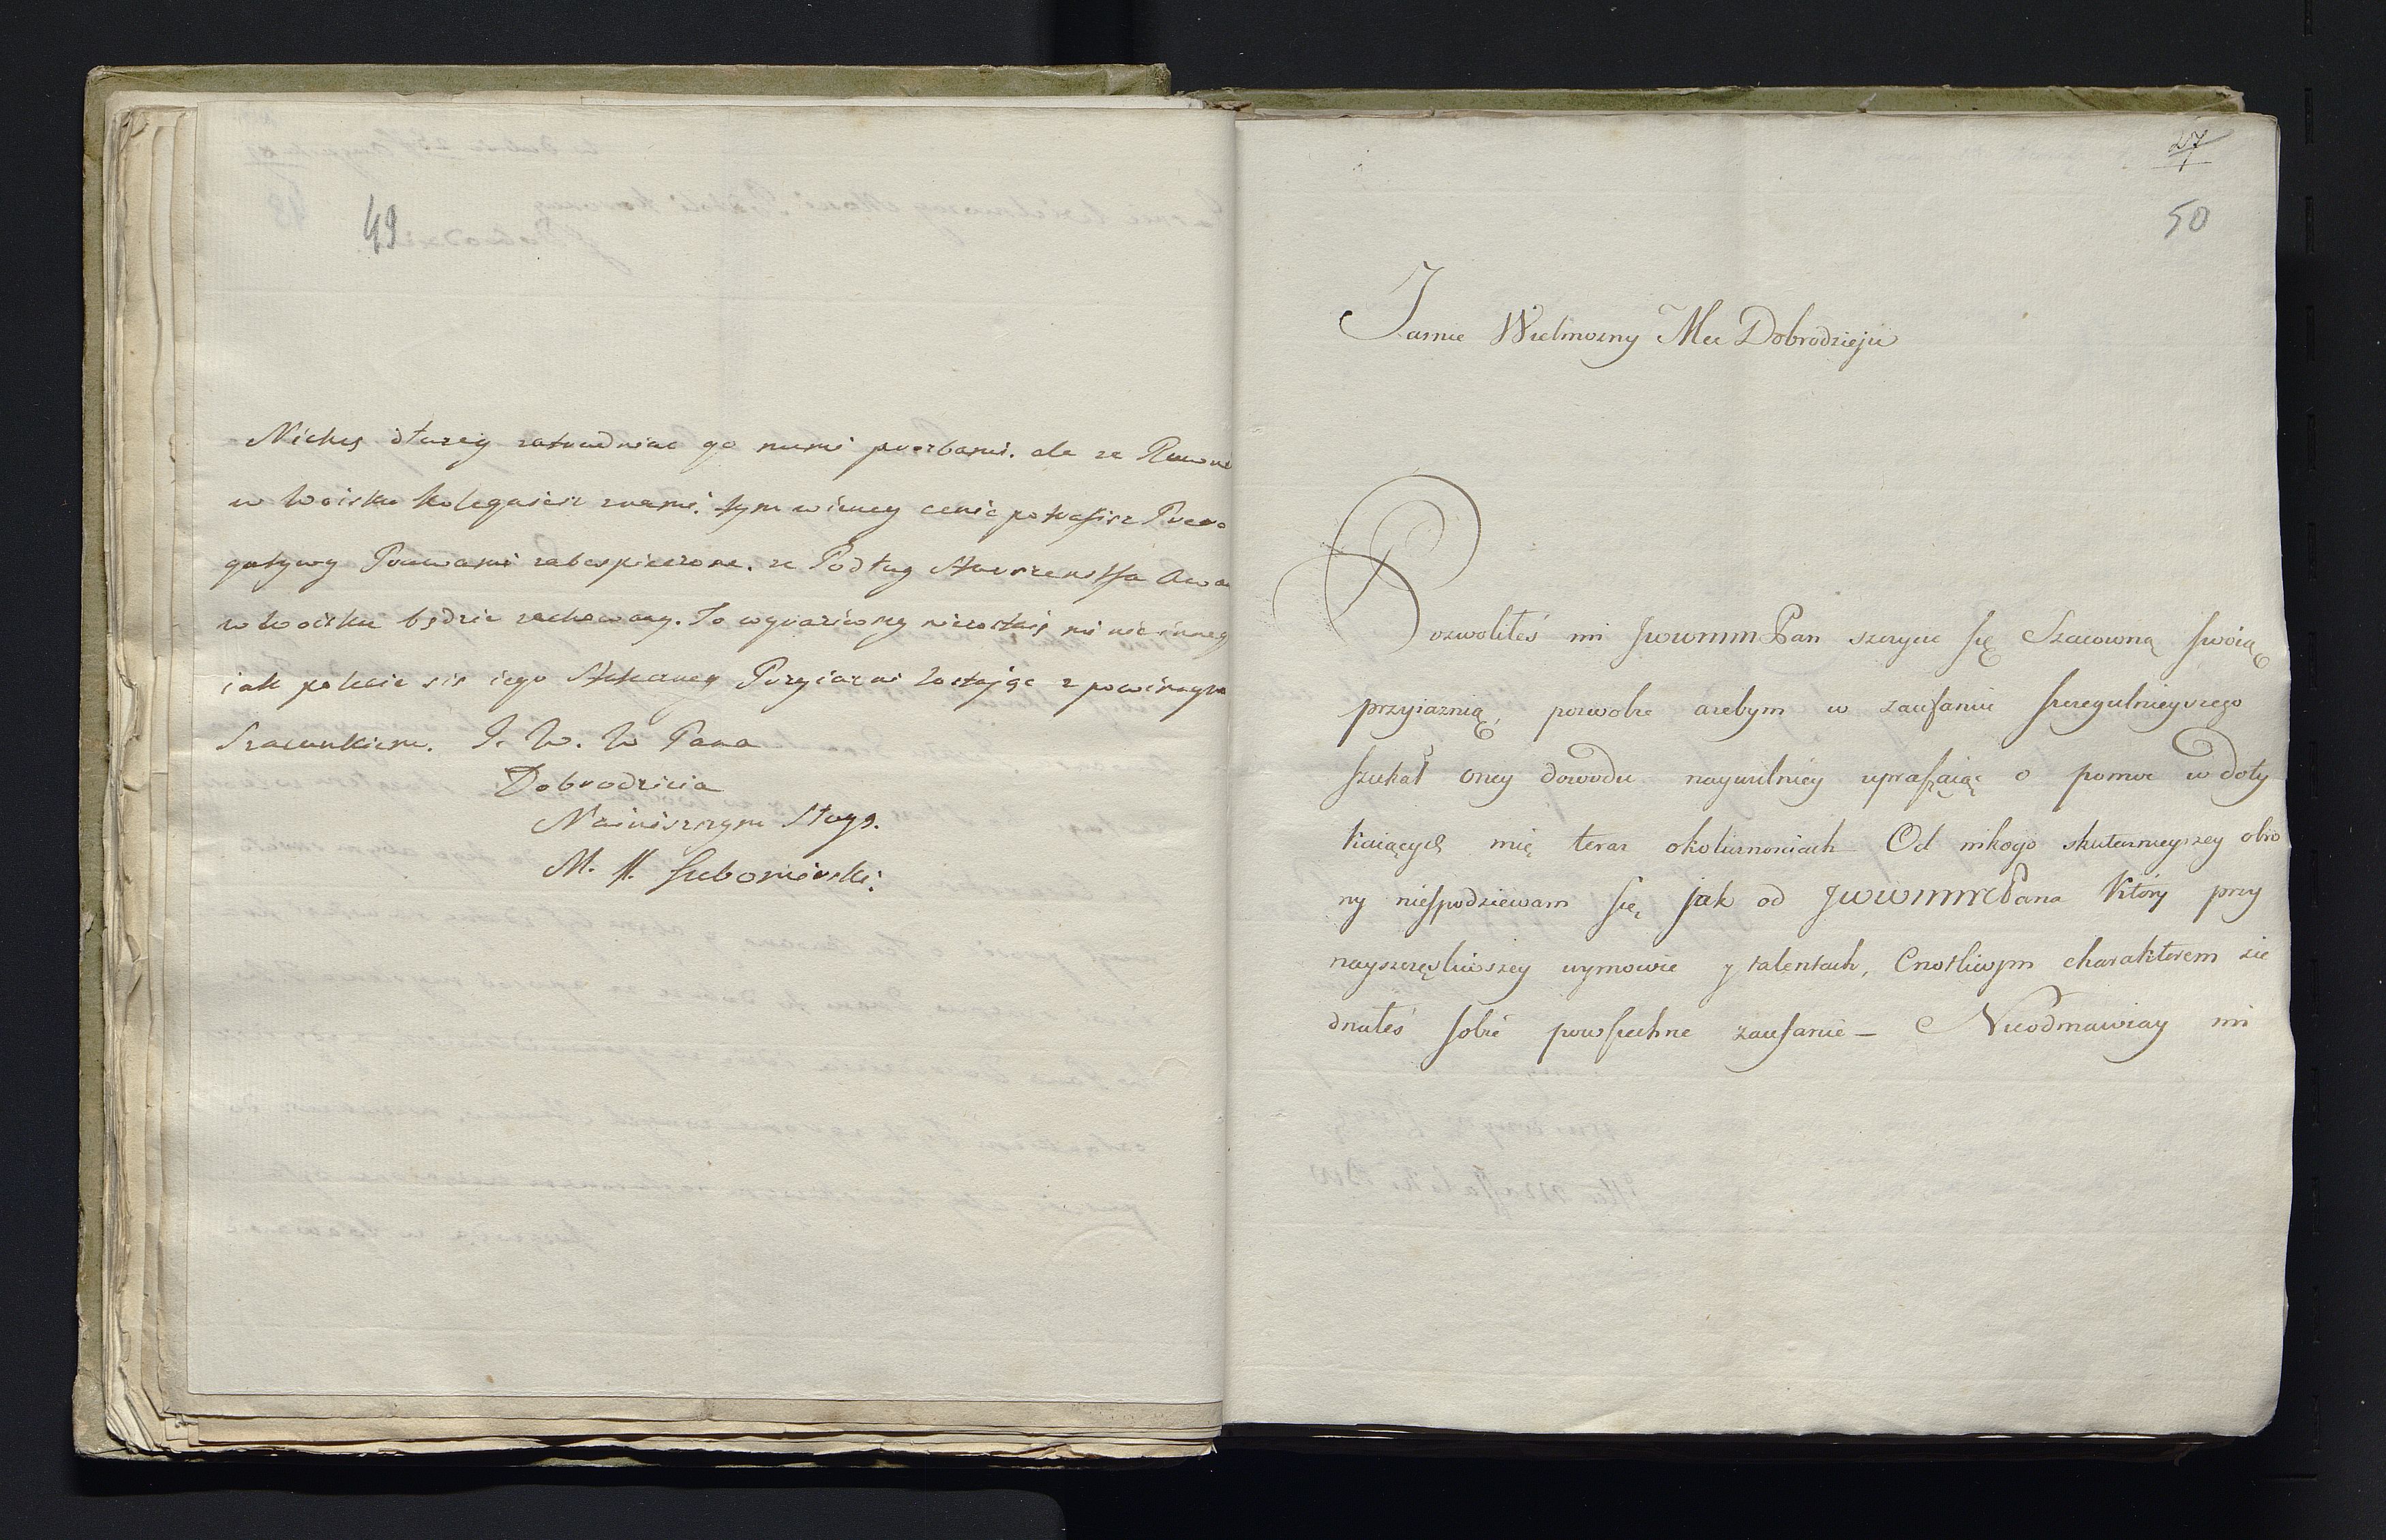 49
Niechcę dłużey zatrudniać go memi proźbami. ale że Rowni
w Woisku kolegujesz znami. tym wiencey cenić potrafisz Prero
gatywy Prawami zabespieczone. że Podług Starszenstfa Awa
w Woisku będzie zachowany. To wyraziwszy niezostaię mi nic innego
iak polecic się iego Przyiazni zostając z powinnym
Szacunkiem. J. W. W Pana
Dobrodzieia
Nainiszszym Sługą.
M. H. Lubomirski.
27
1
50
Jasnie Wielmozny Mci Dobrodzieju
Pozwoliłeś mi JWWMM Pan szczycic się Szacowną swoią
przyiaznią, pozwolże azebym w zaufaniu szczegulnieyszego
szukał oney dowodu nayusilniey upraszaiąc o pomoc w doty
kaiących mię teraz okolicznosciach Od nikogo skutecznieyszey obro
ny niespodziewam się jak od JWWMM Pana który przy
nayszczęśliwszey wymowie y talentach, Cnotliwym charakterem zie
dnałeś sobie powszechne zaufanie – Nieodmawiay mi